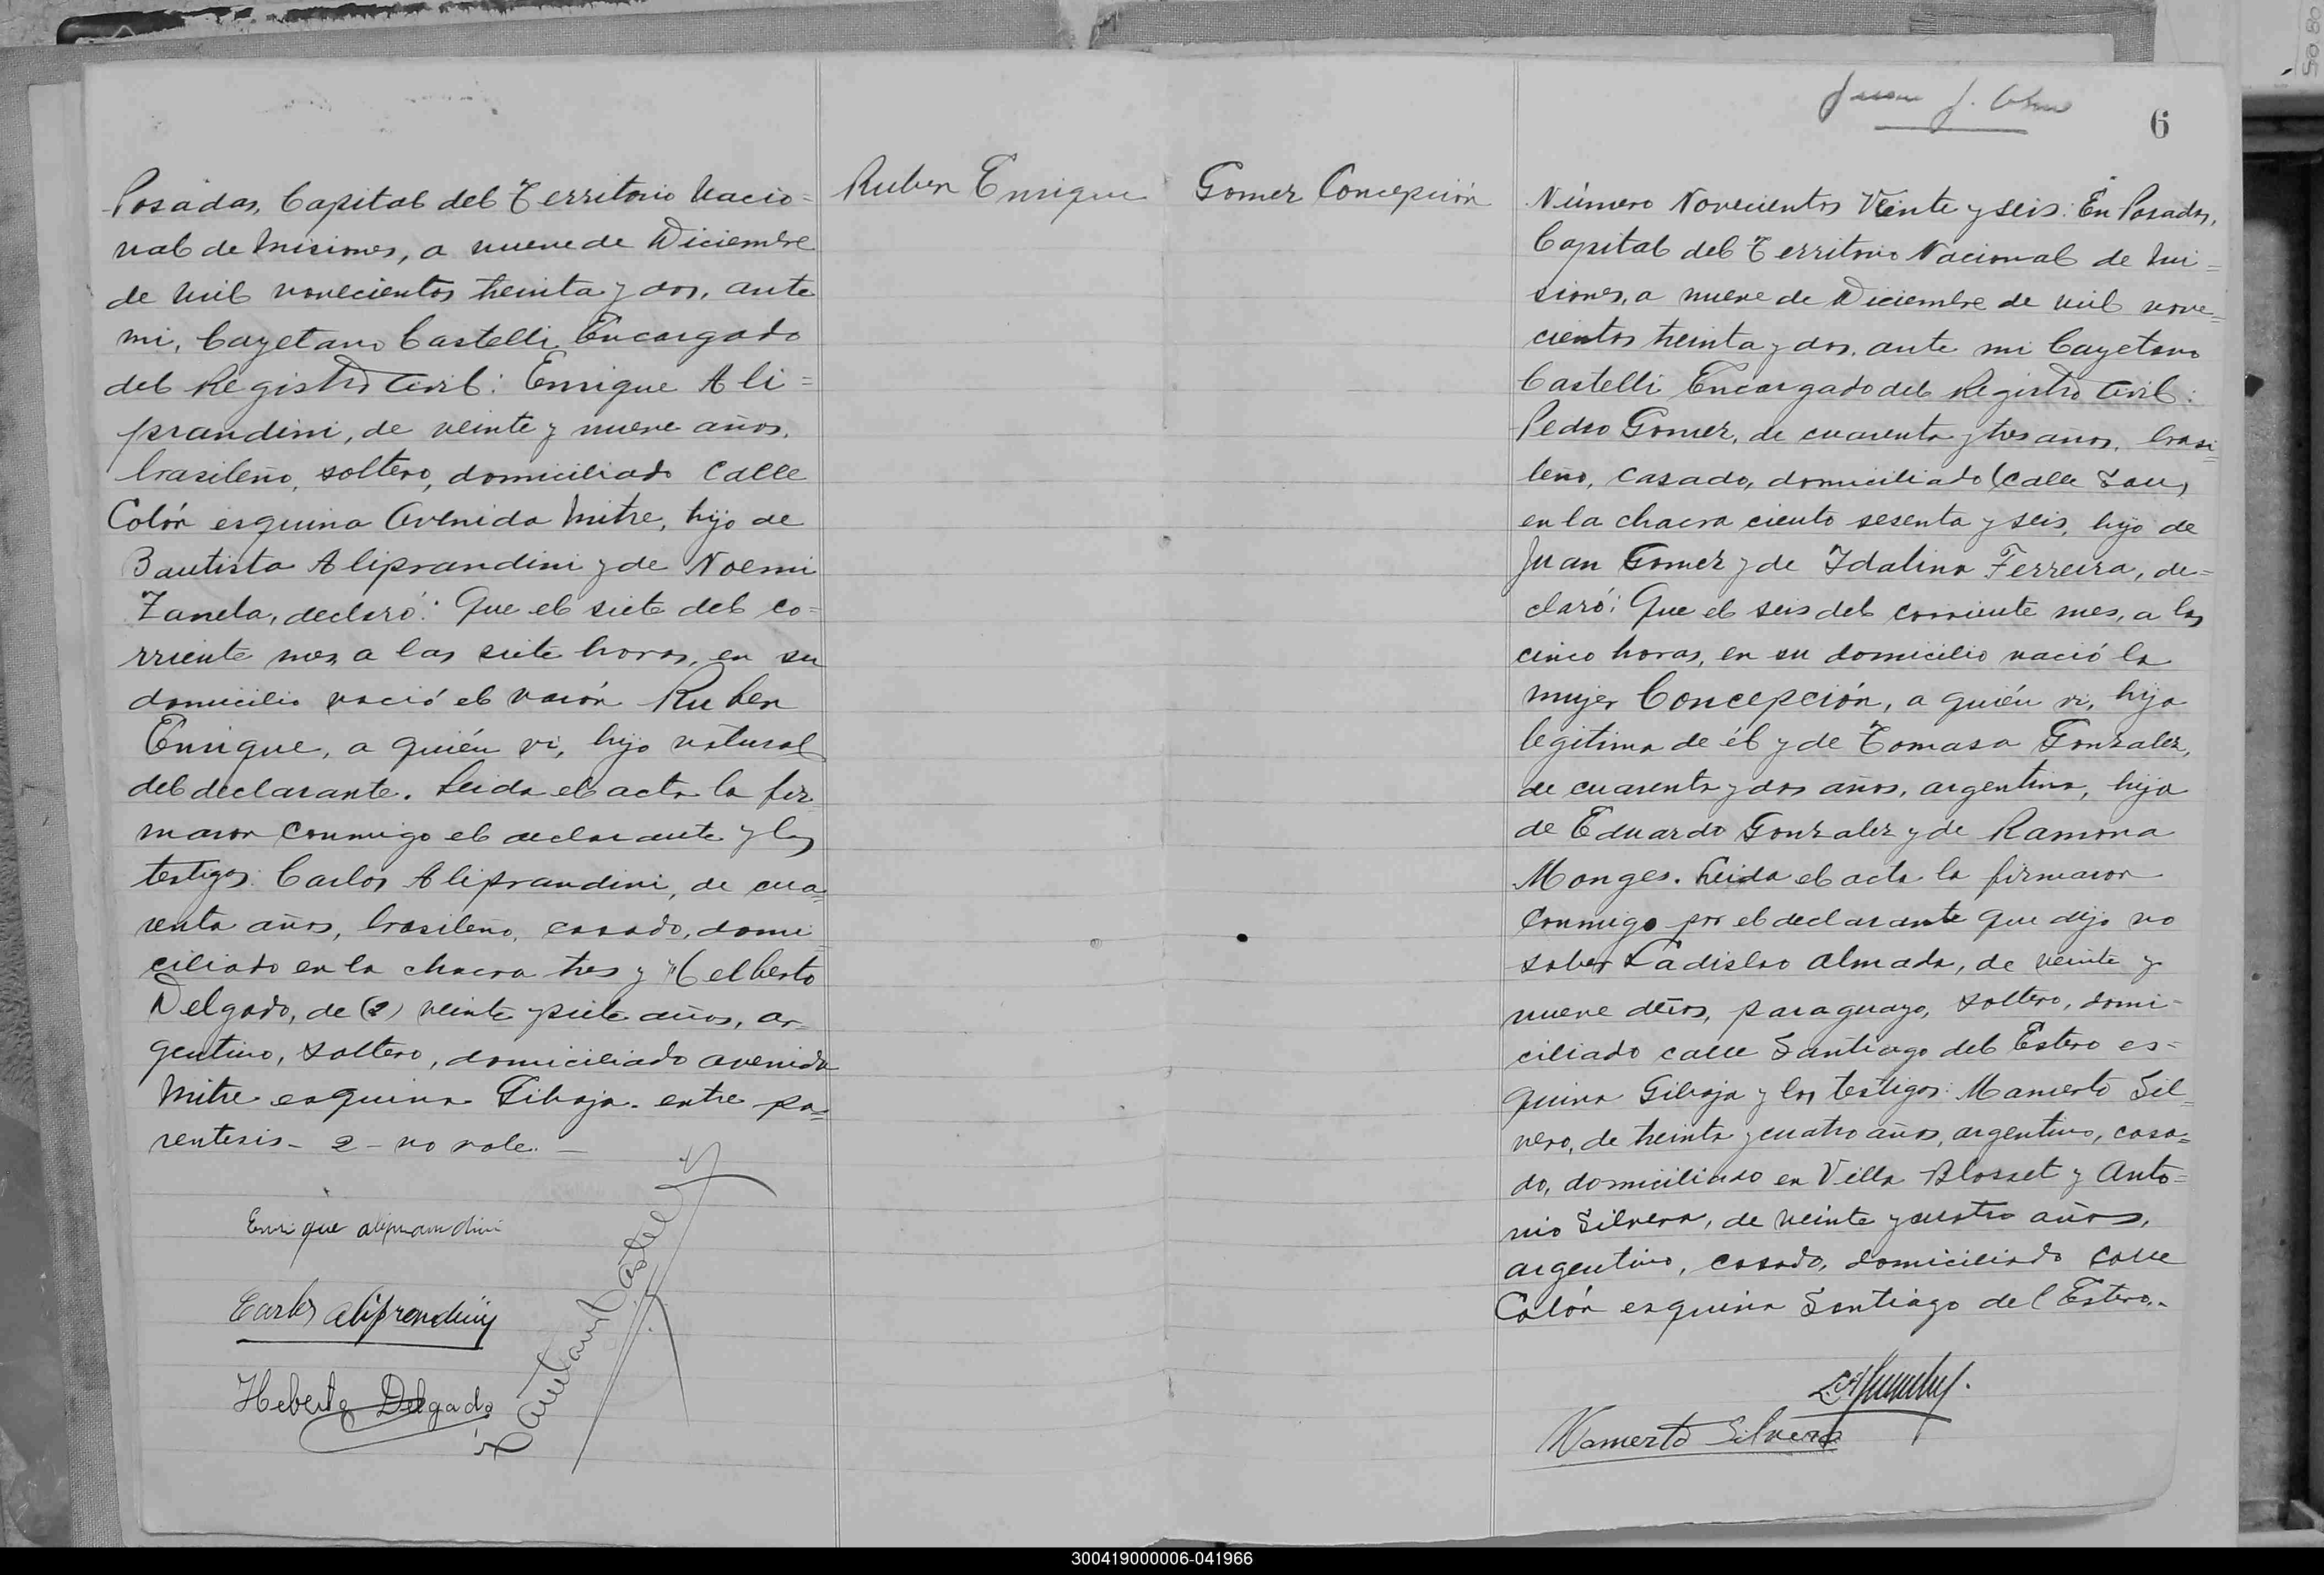 Posadas, Capital del Territorio Nacio=
nal de Misiones, a nueve de Diciembre
de mil novecientos treinta y dos, ante
mi, Cayetano Castelli Encargado
del Registro Civil: Enrique Ali=
prandini, de veinte y nueve años,
brasileño, soltero, domiciliado calle
Colón esquina Avenida Mitre, hijo de
Bautista Aliprandini y de Noemi
Zanela, declaró: Que el siete del co=
rriente mes a las siete horas, en su
domicilio nació el varón Ruben
Enrique, a quién vi, hijo natural
del declarante. Leida el acta la fir
maron conmigo el declarante y los
testigos: Carlos Aliprandini, de cua=
renta años, brasileño, casado, domi=
ciliado en la chacra tres y Helberto
Delgado, de (2) veinte y siete años, ar
gentino, soltero, domiciliado avenida
Mitre esquina Gibaja. entre pa=
rentesis - 2 - no vale. -
Enrique aliprandini
Carlos aliprandini
Heberto Delgado
Cayetano Castelli
Ruben Enrique
Gomez Concepción
Juan J.
6
Número Novecientos Veinte y seis: En Posadas,
Capital del Territorio Nacional de Mi=
siones, a nueve de Diciembre de mil nove=
cientos treinta y dos, ante mi Cayetano
Castelli Encargado del Registro Civil:
Pedro Gomez, de cuarenta y tres años, brasi=
leño, casado, domiciliado (calle San)
en la chacra ciento sesenta y seis, hijo de
Juan Gomez y de Idalina Ferreira, de=
claró: Que el seis del corriente mes, a las
cinco horas, en su domicilio nació la
mujer Concepción, a quién vi, hija
legitima de él y de Tomasa Gonzalez,
de cuarenta y dos años, argentina, hija
de Eduardo Gonzalez y de Ramona
Monges. Leida el acta la firmaron
conmigo por el declarante que dijo no
saber Ladislao Almada, de veinte y
nueve años, paraguayo, soltero, domi=
ciliado calle Santiago del Estero es=
quina Gibaja y los testigos: Mamerto Sil=
vero, de treinta y cuatro años, argentino, casa=
do, domiciliado en Villa Blosset y Anto=
nio Silvera, de veinte y cuatro años,
argentino, casado, domiciliado calle
Colón esquina Santiago del Estero.-
Mamerto Silvera
300419000006-041966